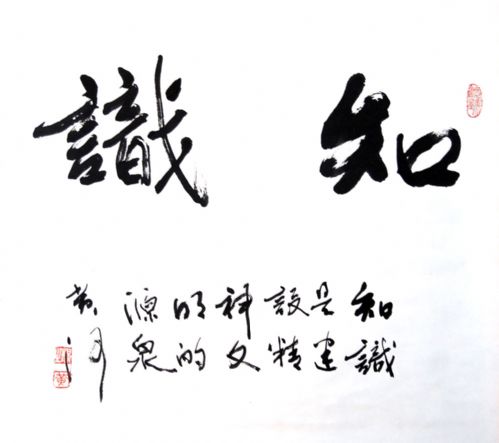 知識
知識
是建
設精
神文
明的
源泉